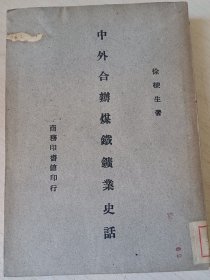 徐梗生著
中外合辦煤鐵鑛業史話
商務印書館印行